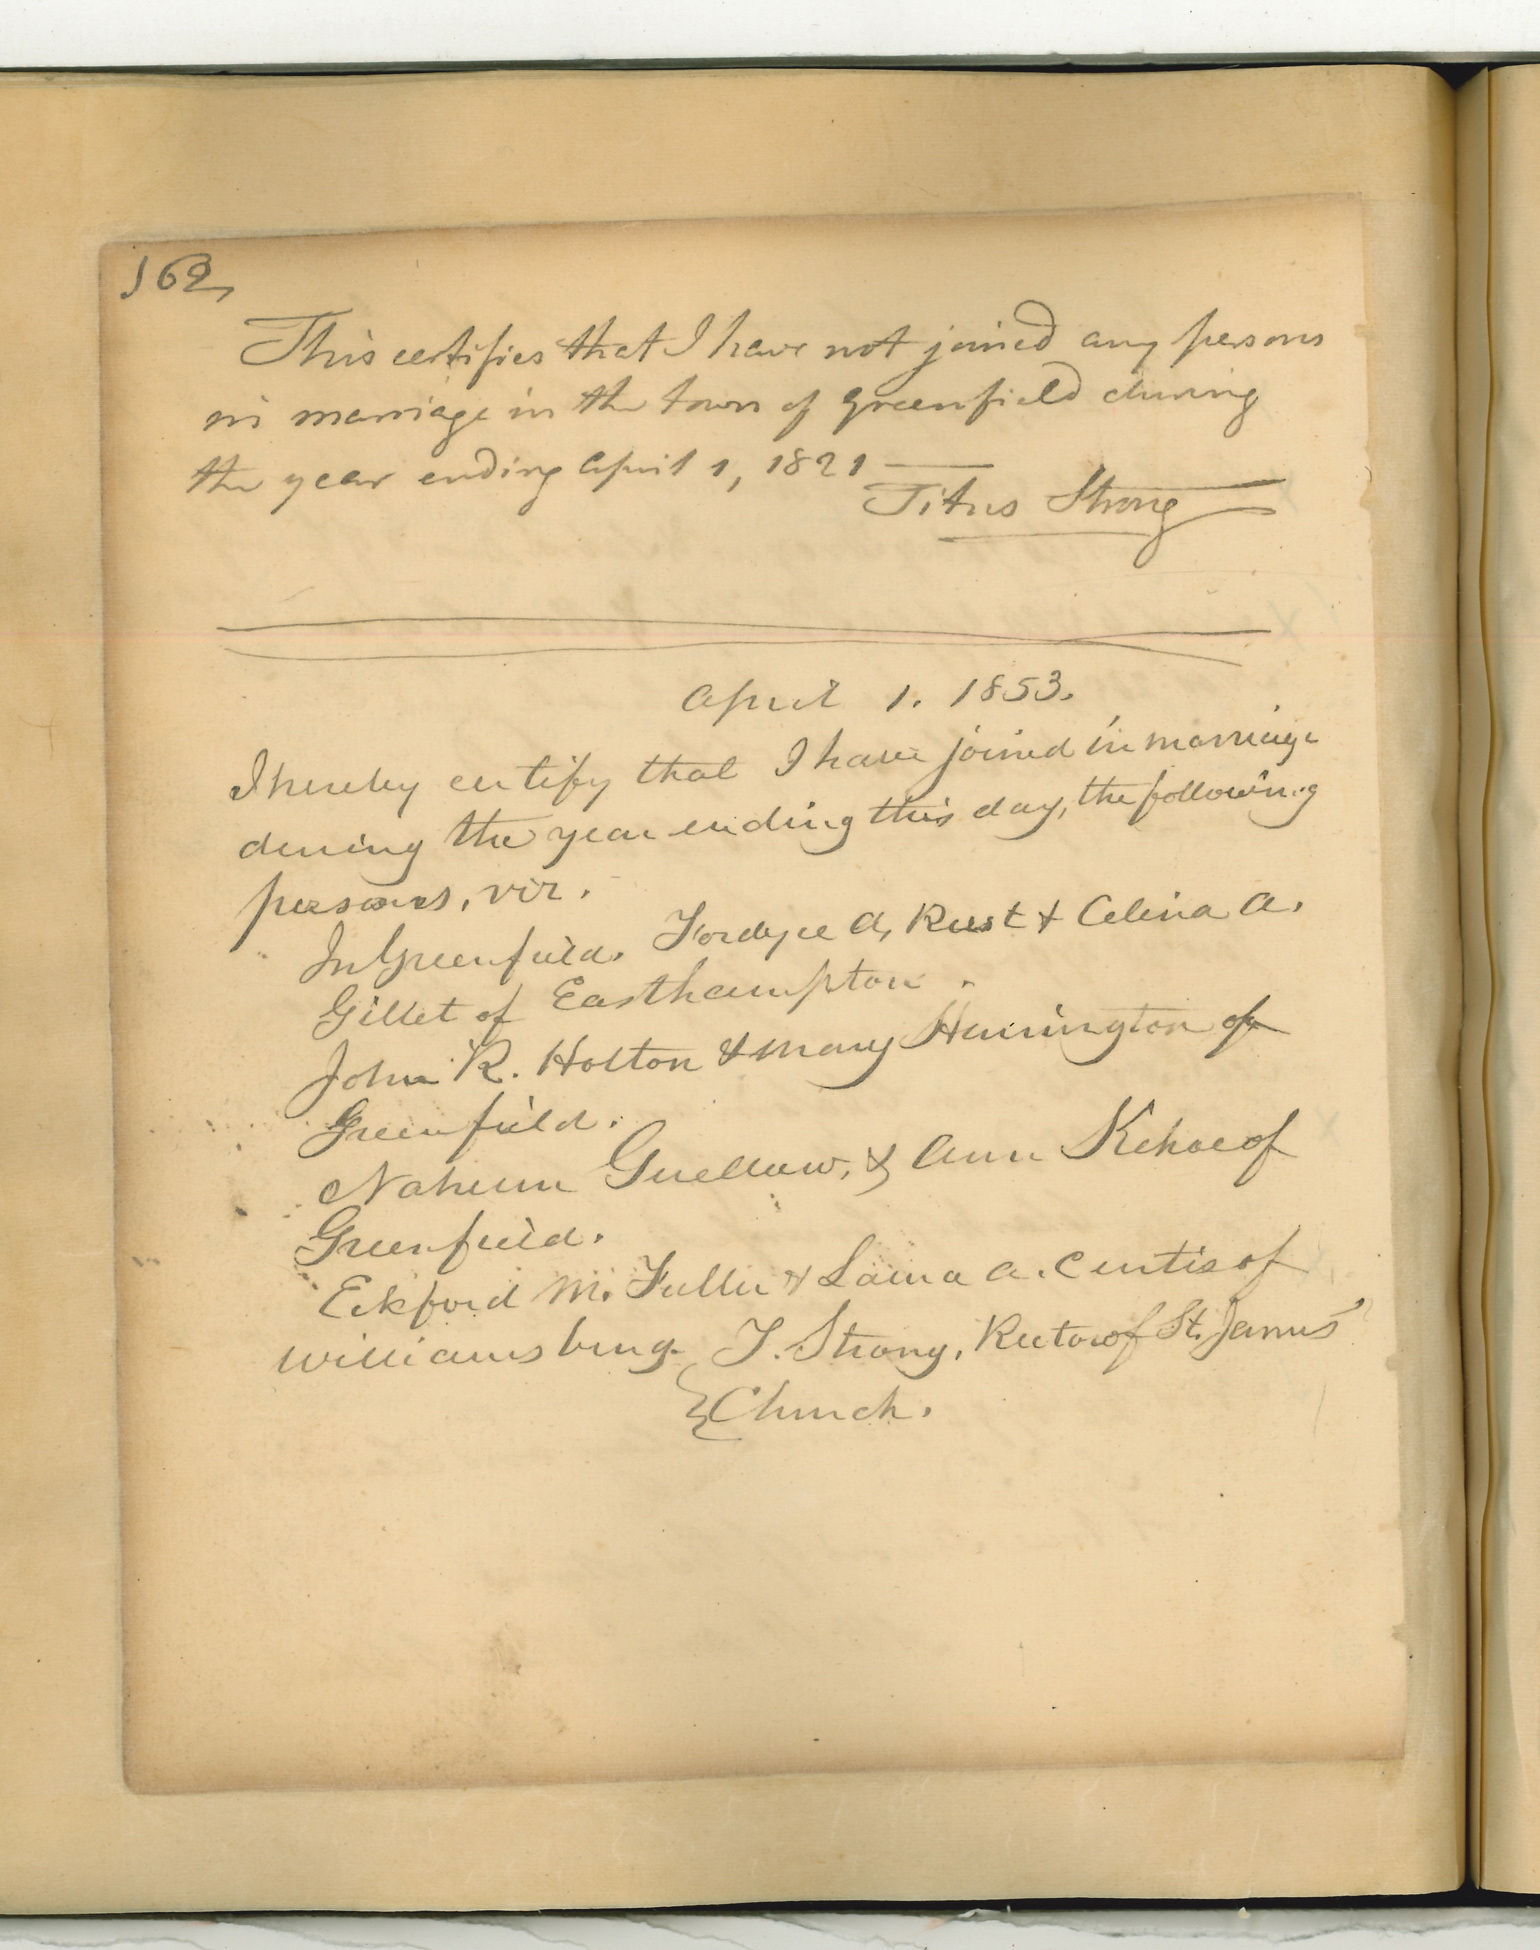 162,
This certifies that I have not joined any persons
in marriage in the town of Greenfield during
the year ending April 1, 1821 —
Titus Strong
April 1. 1853.
I hereby certify that I have joined in marriage
during the year ending this day, the following
persons, viz.
In Greenfield. Fordyce A. Rust & Celina A.
Gillet of Easthampton.
John R. Holton & Mary Harrington of
Greenfield.
Nahum & Ann Kehoe of
Greenfield.
Eckford M. Fuller & Laura A. Curtis of
Williamsburg. T. Strong, Rector of St. James'
Church.